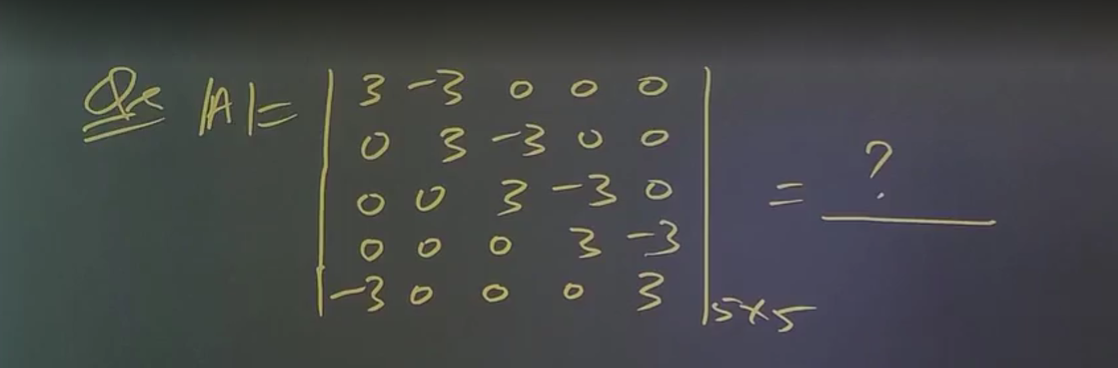 Qs |A| = | 3 -3 0 0 0 |
| 0 3 -3 0 0 |
| 0 0 3 -3 0 | = ?
| 0 0 0 3 -3 |
| -3 0 0 0 3 | 5×5